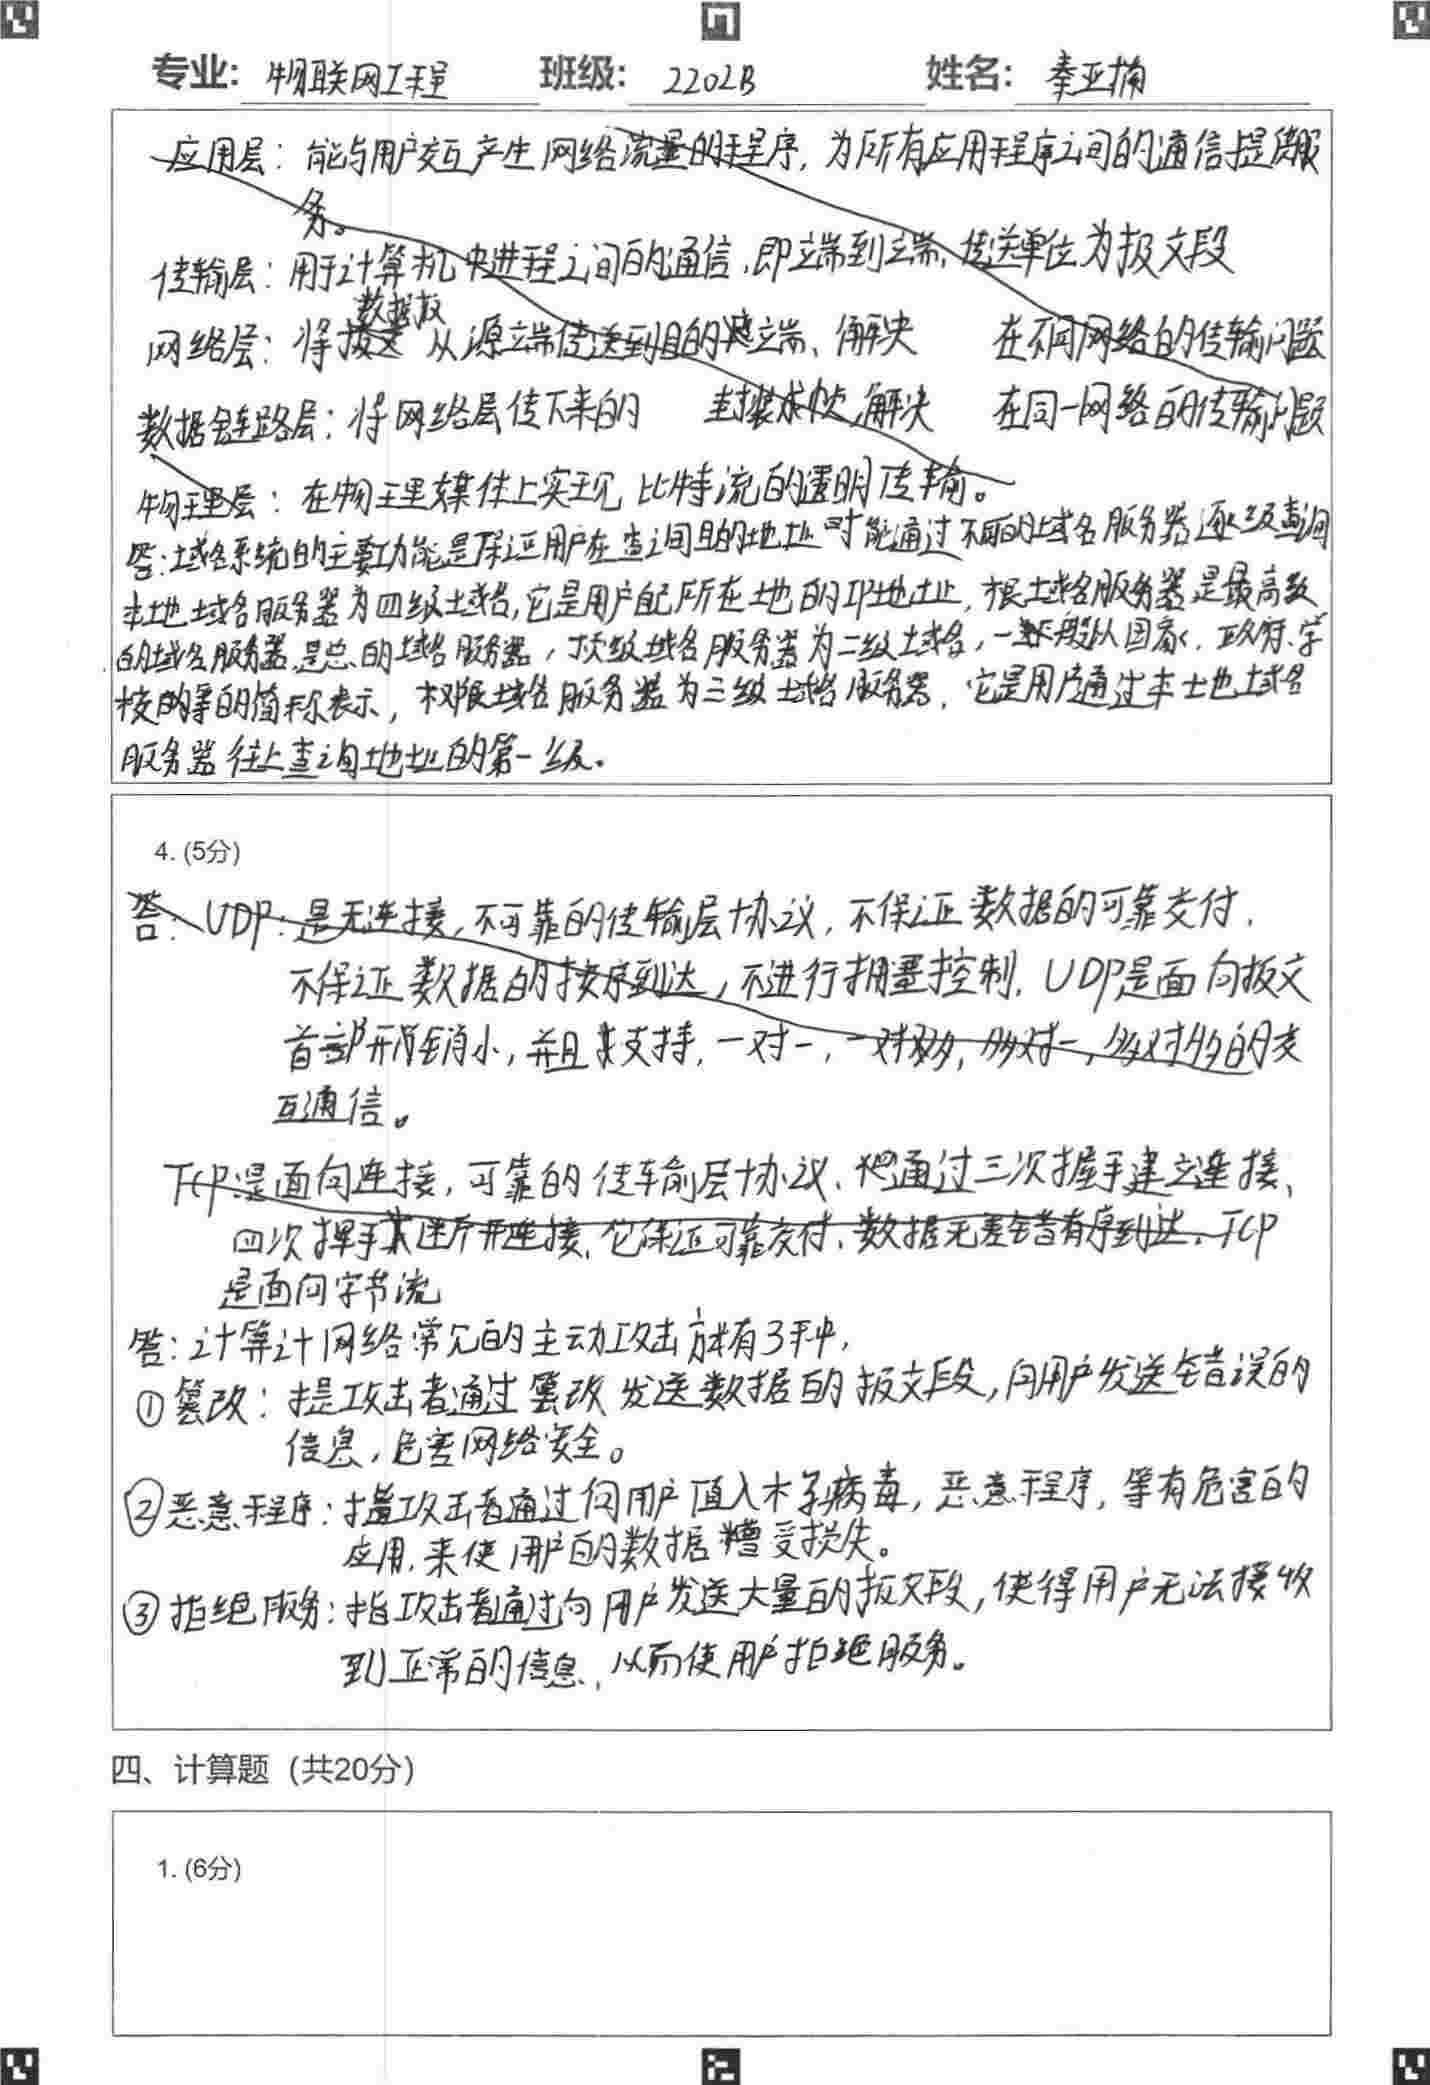 专业: 物联网工程 班级: 2202B 姓名: 秦亚楠
应用层：能与用户交互产生网络流量的程序，为所有应用程序之间的通信提供服
务。
传输层：用于计算机中进程之间的通信，即端到端，传送单位为报文段
数据报
网络层：将报文从源端传送到目的端、解决 在不同网络的传输问题
数据链路层：将网络层传下来的 封装成帧，解决 在同一网络的传输问题
物理层：在物理媒体上实现比特流的透明传输。
答：域名系统的主要功能是保证用户在查询目的地址时能通过不同的域名服务器逐级查询
本地域名服务器为四级域名，它是用户自己所在地的IP地址，根域名服务器是最高级
的域名服务器，是总的域名服务器，顶级域名服务器为二级域名，一般从国家、政府、学
校等的简称表示，权限域名服务器为三级域名服务器，它是用户通过本土地域名
服务器往上查询地址的第一级。
4. (5分)
答：UDP：是无连接，不可靠的传输层协议，不保证数据的可靠交付，
不保证数据的按序到达，不进行拥塞控制，UDP是面向报文
首部开销小，并且支持，一对一，一对多，多对一，多对多的交
互通信。
TCP：是面向连接，可靠的传输层协议、他通过三次握手建立连接、
四次挥手断开连接、它保证可靠交付、数据无差错有序到达、TCP
是面向字节流
答：计算计网络常见的主动攻击方式有3种，
①篡改：提攻击者通过篡改发送数据的报文段，向用户发送错误的
信息，危害网络安全。
②恶意程序：指攻击者通过向用户植入木马病毒，恶意程序，等有危害的
应用，来使用户的数据糟受损失。
③拒绝服务：指攻击者通过向用户发送大量的报文段，使得用户无法接收
到正常的信息，从而使用户拒绝服务。
四、计算题（共20分）
1. (6分)